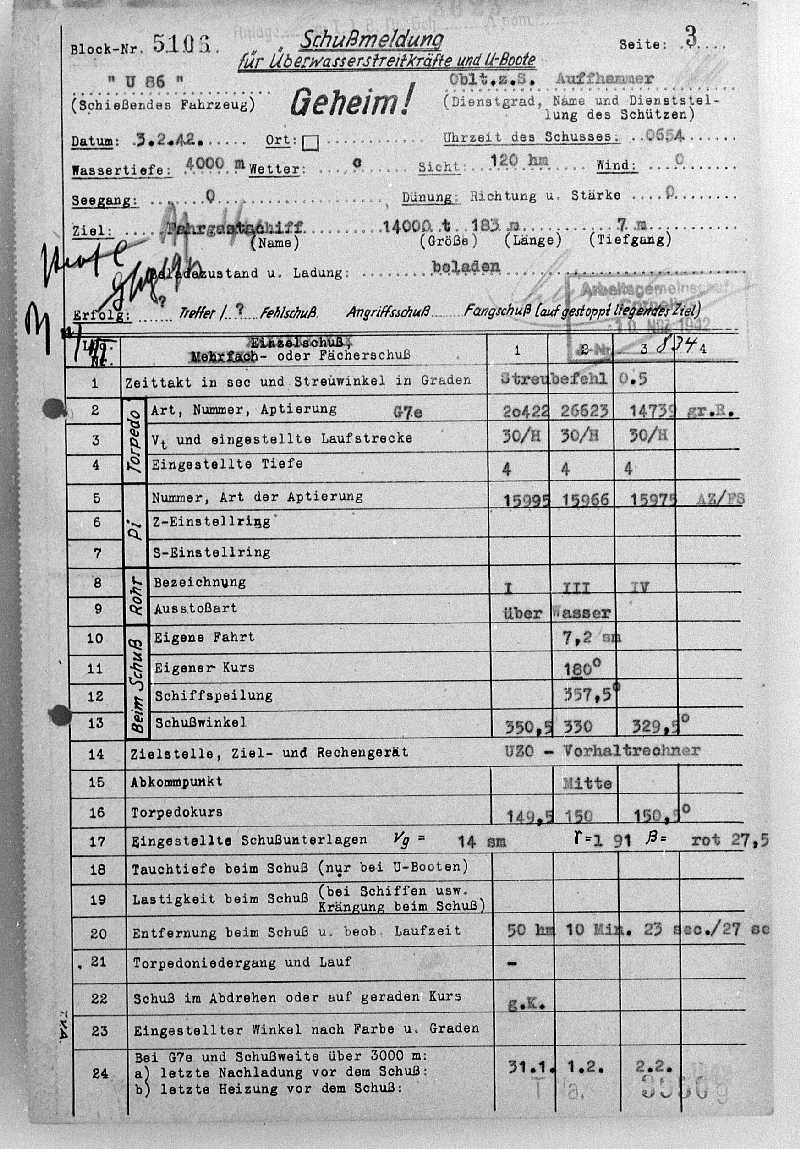 Block-Nr. 5106. Schußmeldung Seite: 3
für Überwasserstreitkräfte und U-Boote
" U 86 " Oblt.z.S. Auffhammer
(Schießendes Fahrzeug) Geheim! (Dienstgrad, Name und Dienststel-
lung des Schützen)
Datum: 3.2.42. Ort: Uhrzeit des Schusses: 0654
Wassertiefe: 4000 m Wetter: o Sicht: 120 hm Wind: 0
Seegang: 0 Dünung: Richtung u. Stärke 0
Ziel: Fahrgastschiff 14000 t 183 m 7 m
(Name) (Größe) (Länge) (Tiefgang)
Beladezustand u. Ladung: beladen
Arbeitsgemeinschaft
Erfolg: ? Treffer /.? Fehlschuß Angriffsschuß Fangschuß (auf gestoppt liegendes Ziel)
Lfd. Nr. Einzelschuß, Mehrfach- oder Fächerschuß 1 2 3 4
834
1 Zeittakt in sec und Streuwinkel in Graden Streubefehl 0.5
Torpedo
2 Art, Nummer, Aptierung G7e 20422 26623 14739 gr.R.
3 Vt und eingestellte Laufstrecke 30/H 30/H 30/H
4 Eingestellte Tiefe 4 4 4
Pi
5 Nummer, Art der Aptierung 15995 15966 15975 AZ/FS
6 Z-Einstellring
7 S-Einstellring
Rohr
8 Bezeichnung I III IV
9 Ausstoßart über Wasser
Beim Schuß
10 Eigene Fahrt 7,2 sm
11 Eigener Kurs 180°
12 Schiffspeilung 357,5°
13 Schußwinkel 350,5 330 329,5°
14 Zielstelle, Ziel- und Rechengerät UZO - Vorhaltrechner
15 Abkommpunkt Mitte
16 Torpedokurs 149,5 150 150,5°
17 Eingestellte Schußunterlagen Vg = 14 sm γ=1 91 β= rot 27,5
18 Tauchtiefe beim Schuß (nur bei U-Booten)
19 Lastigkeit beim Schuß (bei Schiffen usw.
Krängung beim Schuß)
20 Entfernung beim Schuß u. beob. Laufzeit 50 hm 10 Min. 23 sec./27 se
21 Torpedoniedergang und Lauf -
22 Schuß im Abdrehen oder auf geraden Kurs g.K.
23 Eingestellter Winkel nach Farbe u. Graden
24 Bei G7e und Schußweite über 3000 m:
a) letzte Nachladung vor dem Schuß: 31.1. 1.2. 2.2.
b) letzte Heizung vor dem Schuß: